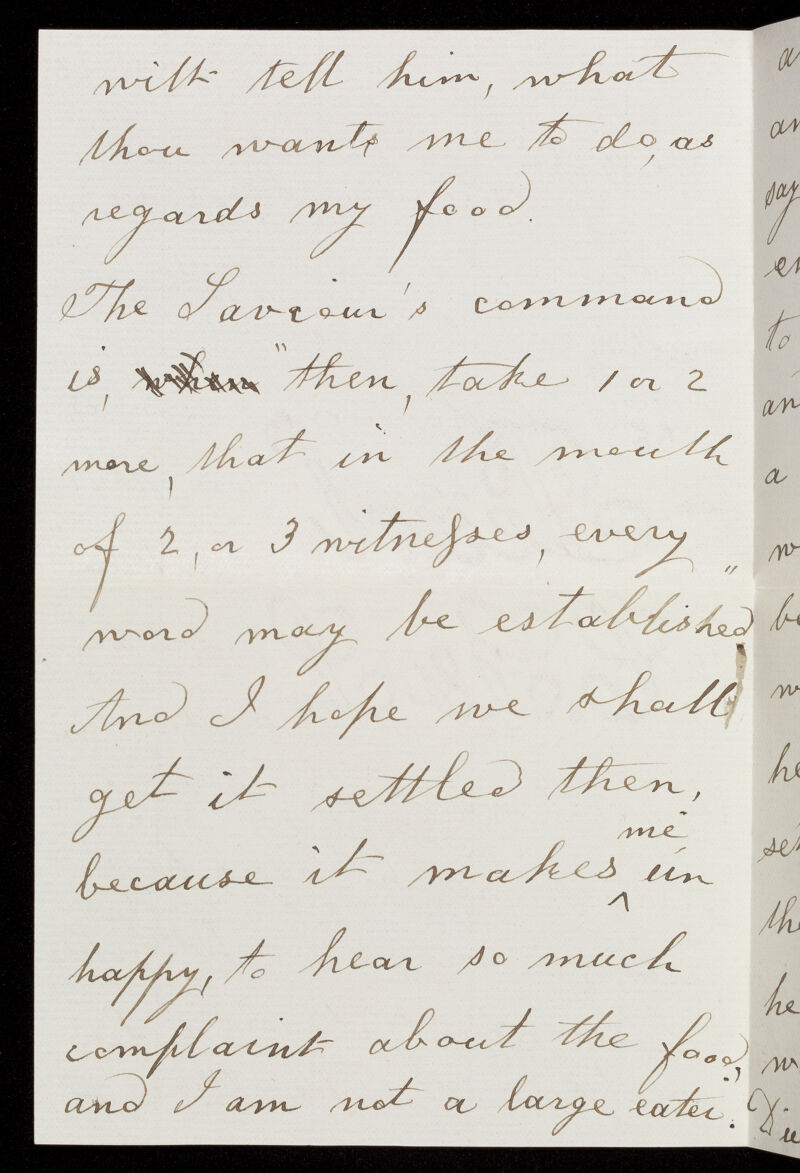 wilt tell him, what
thou wants me to do, as
regards my food.
The Saviour's command
is, when "then, take 1 or 2
more, that in the mouth
of 2, or 3 witnesses, every
word may be established"
And I hope we shall
get it settled then,
because it makes me un
happy, to hear so much
complaint about the food,
and I am not a large eater.
a
an
say
en
to
an
a
w
be
w
he
set
the
he
w